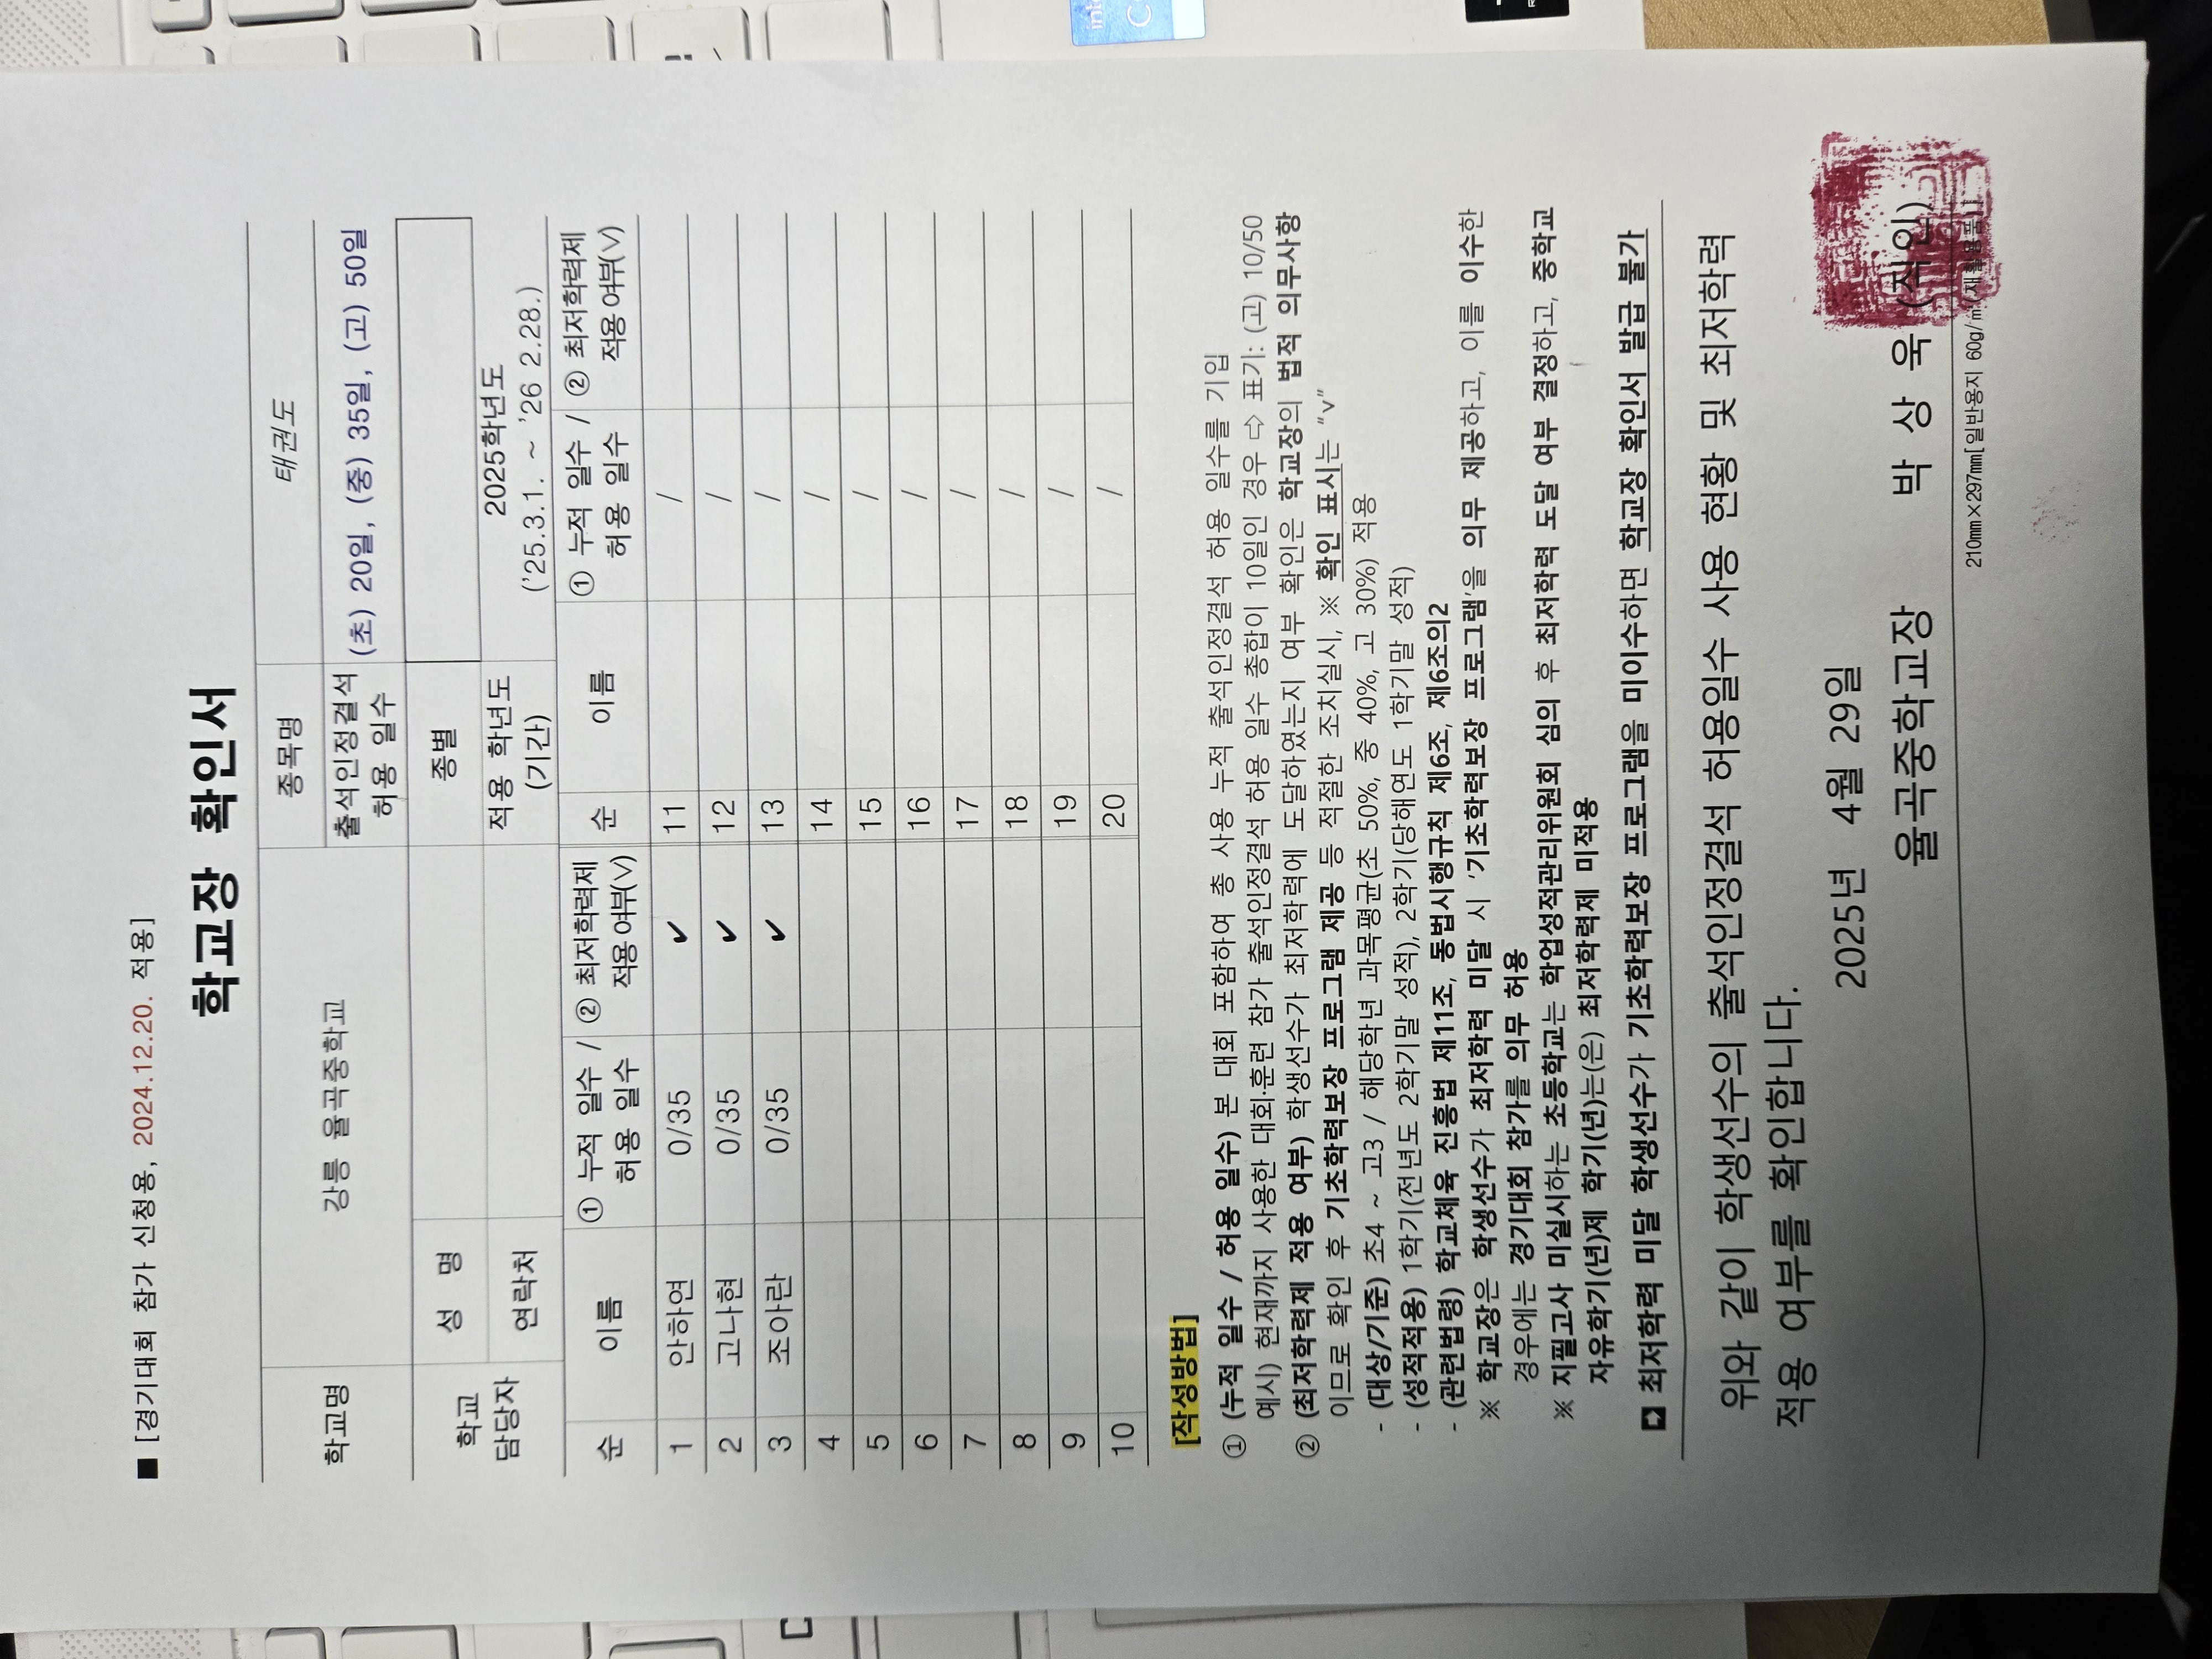 ■ [경기대회 참가 신청용, 2024.12.20. 적용]
학교장 확인서
학교명 강릉 율곡중학교 종목명 태권도
출석인정결석 허용 일수 (초) 20일, (중) 35일, (고) 50일
학교 담당자 성 명 종별
연락처 적용 학년도 (기간) 2025학년도 ('25.3.1. ~ '26 2.28.)
순 이름 ① 누적 일수 / 허용 일수 ② 최저학력제 적용 여부(∨) 순 이름 ① 누적 일수 / 허용 일수 ② 최저학력제 적용 여부(∨)
1 안하연 0/35 ✔ 11 /
2 고나현 0/35 ✔ 12 /
3 조아란 0/35 ✔ 13 /
4 14 /
5 15 /
6 16 /
7 17 /
8 18 /
9 19 /
10 20 /
[작성방법]
① (누적 일수 / 허용 일수) 본 대회 포함하여 총 사용 누적 출석인정결석 허용 일수를 기입
예시) 현재까지 사용한 대회·훈련 참가 출석인정결석 허용 일수 총합이 10일인 경우 ⇨ 표기: (고) 10/50
② (최저학력제 적용 여부) 학생선수가 최저학력에 도달하였는지 여부 확인은 학교장의 법적 의무사항
이므로 확인 후 기초학력보장 프로그램 제공 등 적절한 조치실시, ※ 확인 표시는 "v"
- (대상/기준) 초4 ~ 고3 / 해당학년 과목평균(초 50%, 중 40%, 고 30%) 적용
- (성적적용) 1학기(전년도 2학기말 성적), 2학기(당해연도 1학기말 성적)
- (관련법령) 학교체육 진흥법 제11조, 동법시행규칙 제6조, 제6조의2
※ 학교장은 학생선수가 최저학력 미달 시 '기초학력보장 프로그램'을 의무 제공하고, 이를 이수한
경우에는 경기대회 참가를 의무 허용
※ 지필고사 미실시하는 초등학교는 학업성적관리위원회 심의 후 최저학력 도달 여부 결정하고, 중학교
자유학기(년)제 학기(년)는(은) 최저학력제 미적용
➲ 최저학력 미달 학생선수가 기초학력보장 프로그램을 미이수하면 학교장 확인서 발급 불가
위와 같이 학생선수의 출석인정결석 허용일수 사용 현황 및 최저학력
적용 여부를 확인합니다.
2025년 4월 29일
율곡중학교장 박 상 욱 (직인)
210㎜×297㎜[일반용지 60g/㎡(재활용품)]